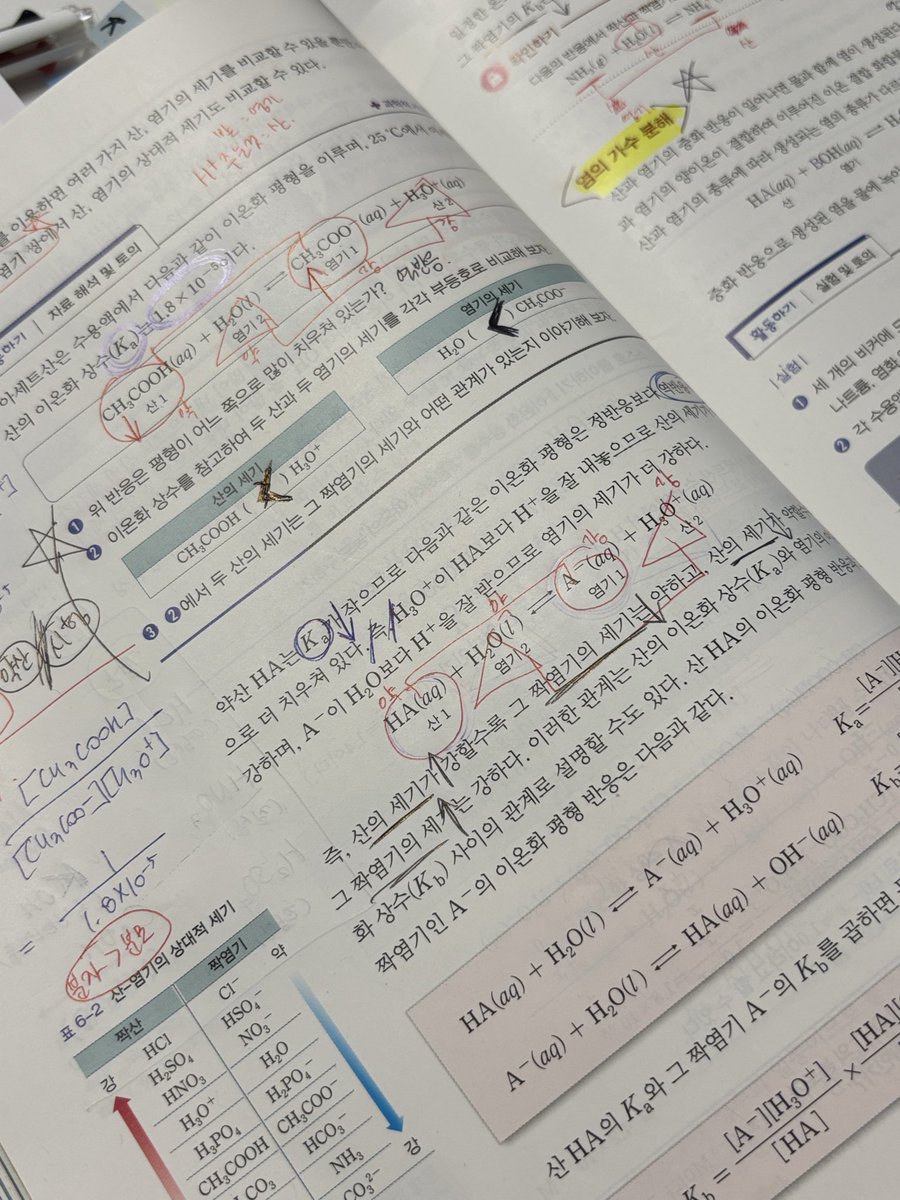 를 이용하면 여러 가지 산, 염기의 세기를 비교할 수 있을 뿐만
염기 쌍에서 산, 염기의 상대적 세기도 비교할 수 있다.
H 주는것:산.
자료 해석 및 토의
아세트산은 수용액에서 다음과 같이 이온화 평형을 이루며, 25 °C에서 아세
산의 이온화 상수(Ka)는 1.8×10⁻⁵이다.
CH₃COOH(aq) + H₂O(l) ⇌ CH₃COO⁻(aq) + H₃O⁺(aq)
산 1 염기 2 염기 1 산 2
약 약 강 강
❶ 위 반응은 평형이 어느 쪽으로 많이 치우쳐 있는가? 역반응.
❷ 이온화 상수를 참고하여 두 산과 두 염기의 세기를 각각 부등호로 비교해 보자.
산의 세기
CH₃COOH ( < ) H₃O⁺
염기의 세기
H₂O ( < ) CH₃COO⁻
❸ ❷에서 두 산의 세기는 그 짝염기의 세기와 어떤 관계가 있는지 이야기해 보자.
약산 HA는 Ka가 작으므로 다음과 같은 이온화 평형은 정반응보다 역반응
으로 더 치우쳐 있다. 즉, H₃O⁺이 HA보다 H⁺을 잘 내놓으므로 산의 세기가
강하며, A⁻이 H₂O보다 H⁺을 잘 받으므로 염기의 세기가 더 강하다.
약 약 강 강
HA(aq) + H₂O(l) ⇌ A⁻(aq) + H₃O⁺(aq)
산 1 염기 2 염기 1 산 2
즉, 산의 세기가 강할수록 그 짝염기의 세기는 약하고, 산의 세기가 약할수
그 짝염기의 세기는 강하다. 이러한 관계는 산의 이온화 상수(Ka)와 염기의 이
화 상수(Kb) 사이의 관계로 설명할 수도 있다. 산 HA의 이온화 평형 반응과
짝염기인 A⁻의 이온화 평형 반응은 다음과 같다.
HA(aq) + H₂O(l) ⇌ A⁻(aq) + H₃O⁺(aq) Ka = [A⁻][H
A⁻(aq) + H₂O(l) ⇌ HA(aq) + OH⁻(aq) Kb
산 HA의 Ka와 그 짝염기 A⁻의 Kb를 곱하면
Kb = [A⁻][H₃O⁺] / [HA] × [HA][
[CH₃COOH]
[CH₃COO⁻][CH₃O⁺]
= 1 / 1.8×10⁻⁵
표 6-2 산-염기의 상대적 세기
짝산 짝염기
강 HCl Cl⁻ 약
H₂SO₄ HSO₄⁻
HNO₃ NO₃⁻
H₃O⁺ H₂O
H₃PO₄ H₂PO₄⁻
CH₃COOH CH₃COO⁻
₂CO₃ HCO₃⁻
NH₃ 강
CO₃²⁻
그 짝염기의 Kb
확인하기
다음의 반응에서 짝산과 짝염기
NH₃(g) + H₂O(l) ⇌ NH₄
염의 가수 분해
산과 염기의 중화 반응이 일어나면 물과 함께 염이 생성된다
과 염기의 양이온이 결합하여 이루어진 이온 결합 화합물
산과 염기의 종류에 따라 생성되는 염의 종류가 다르
HA(aq) + BOH(aq) ⇌ H
산 염기
중화 반응으로 생성된 염을 물에 녹이
활동하기 | 실험 및 토의
|실험|
❶ 세 개의 비커에
나트륨, 염화
❷ 각 수용액